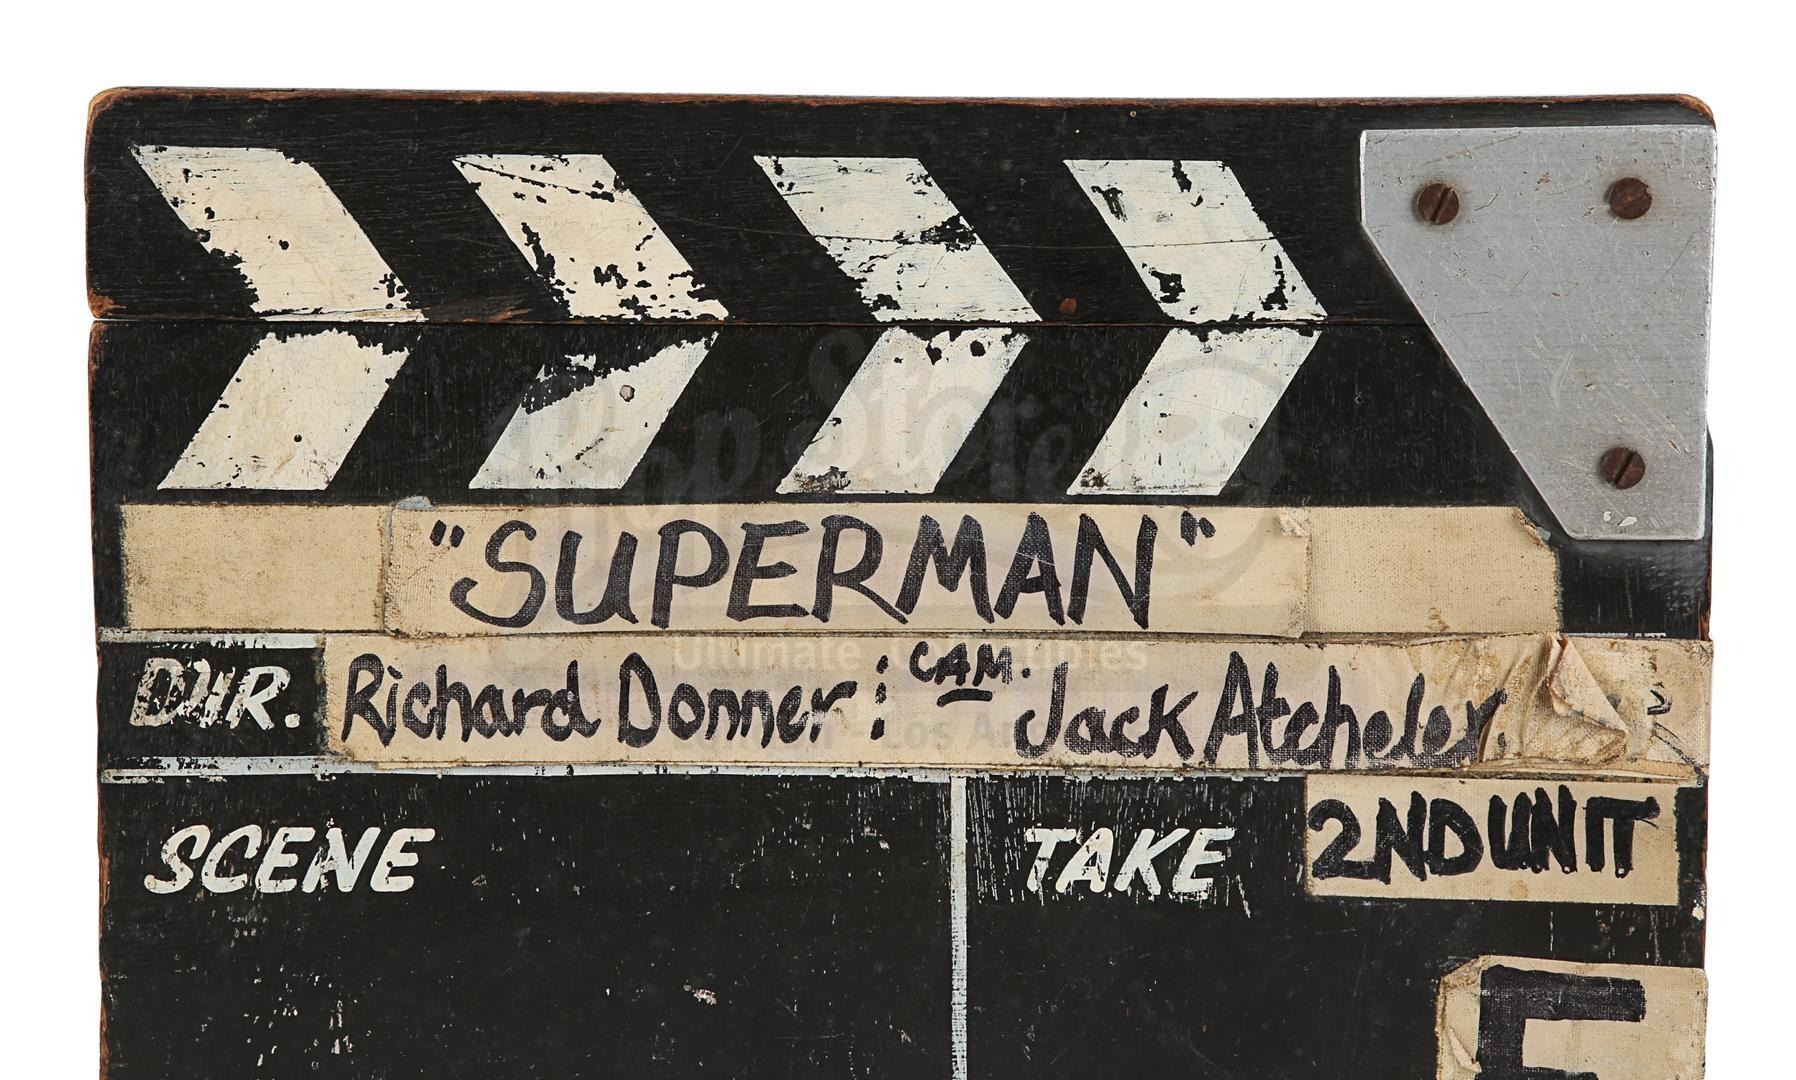 "SUPERMAN"
DIR. Richard Donner : CAM. Jack Atcheler.
SCENE
TAKE 2ND UNIT
Prop Store
Ultimate Collectables
London - Los Angeles